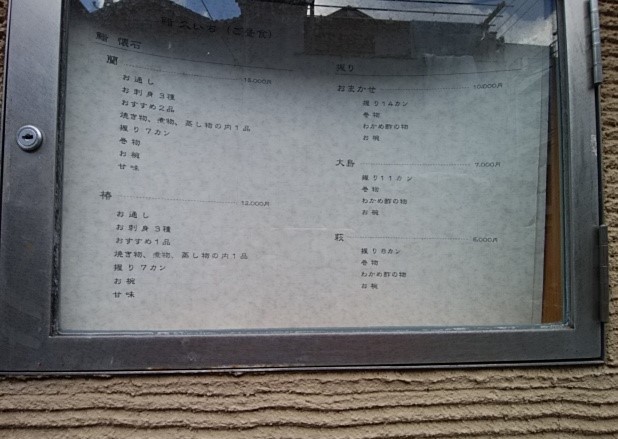 鮨 懐石
蘭 15,000円
お通し
お刺身3種
おすすめ2品
焼き物、煮物、蒸し物の内1品
握り7カン
巻物
お椀
甘味
椿 12,000円
お通し
お刺身3種
おすすめ1品
焼き物、煮物、蒸し物の内1品
握り7カン
お椀
甘味
握り
おまかせ 10,000円
握り14カン
巻物
わかめ酢の物
お椀
大島 7,000円
握り11カン
巻物
わかめ酢の物
お椀
萩
巻物
わかめ酢の物
お椀